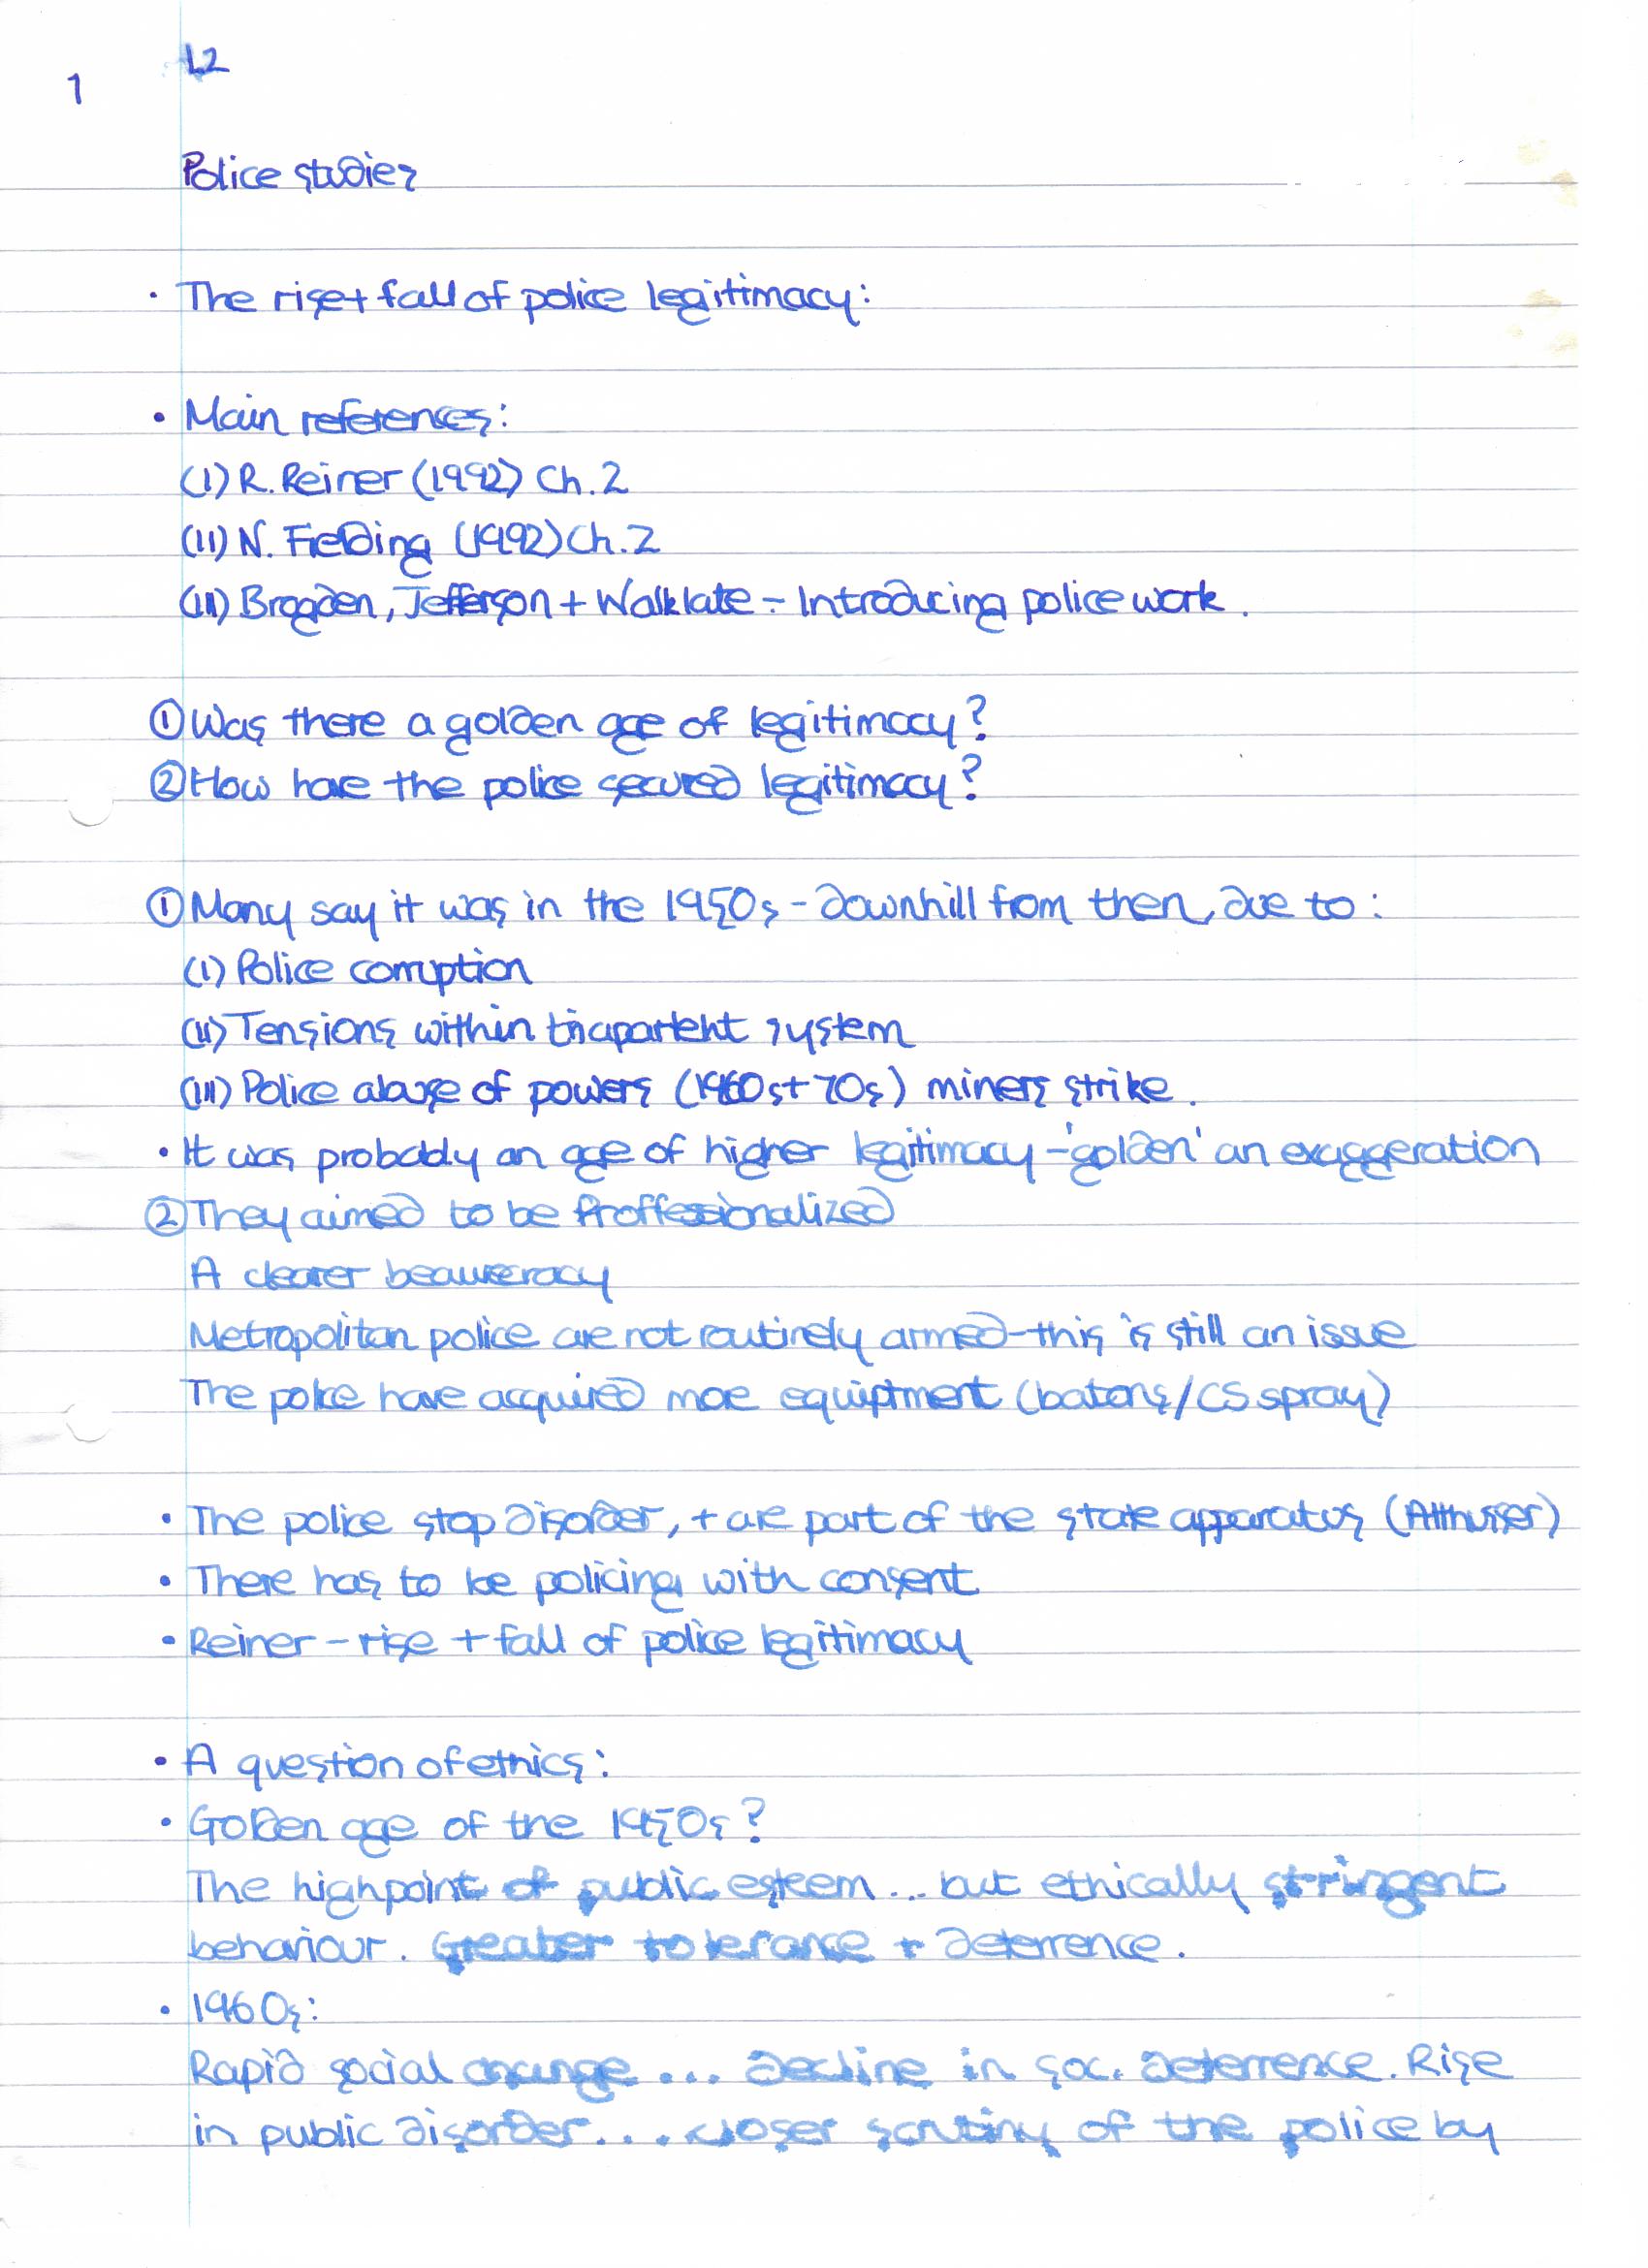 L2
1
Police studies
• The rise + fall of police legitimacy:
• Main references:
(I) R. Reiner (1992) Ch. 2
(II) N. Fielding (1992) Ch. 2
(III) Brogden, Jefferson + Walklate - Introducing police work.
① Was there a golden age of legitimacy?
② How have the police secured legitimacy?
① Many say it was in the 1950s - downhill from then, due to:
(I) Police corruption
(II) Tensions within system
(III) Police abuse of powers (1960s + 70s) miners strike.
• It was probably an age of higher legitimacy - 'golden' an exaggeration
② They aimed to be Proffessionalized
A clearer
Metropolitan police are not routinely armed - this is still an issue
The police have acquired more equiptment (batons/CS spray)
• The police stop disorder, + are part of the state apparatus (Althusser)
• There has to be policing with consent
• Reiner - rise + fall of police legitimacy
• A question of ethics:
• Golden age of the 1950s?
The highpoint of public esteem... but ethically stringent
behaviour. Greater tolerance + deterrence.
• 1960s:
Rapid social change... Decline in soc. deterrence. Rise
in public disorder.... closer scrutiny of the police by